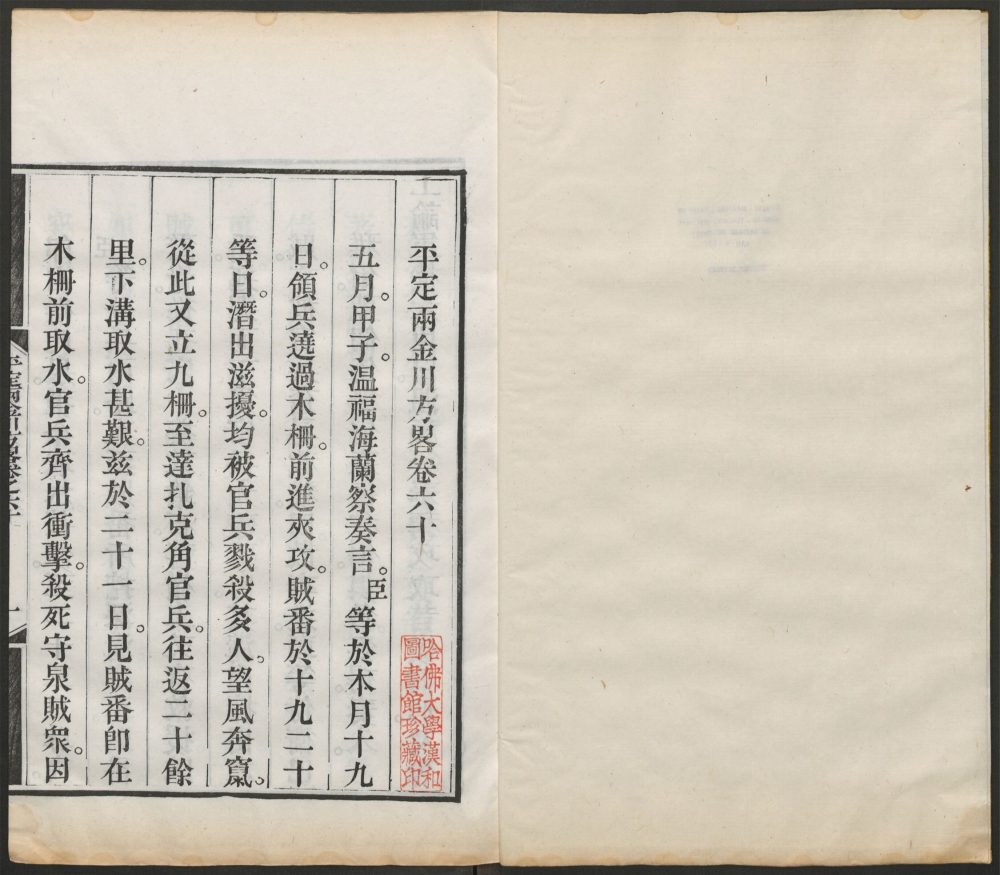 平定兩金川方畧卷六十
哈佛大學漢和
圖書館珍藏印
五月。甲子。温福海蘭察奏言。臣等於本月十九
日。領兵遶過木柵。前進夾攻。賊番於十九二十
等日。潛出滋擾。均被官兵戮殺多人。望風奔竄。
從此又立九柵。至達扎克角官兵。往返二十餘
里。下溝取水甚艱。兹於二十一日。見賊番卽在
木柵前取水。官兵齊出衝擊。殺死守泉賊衆。因